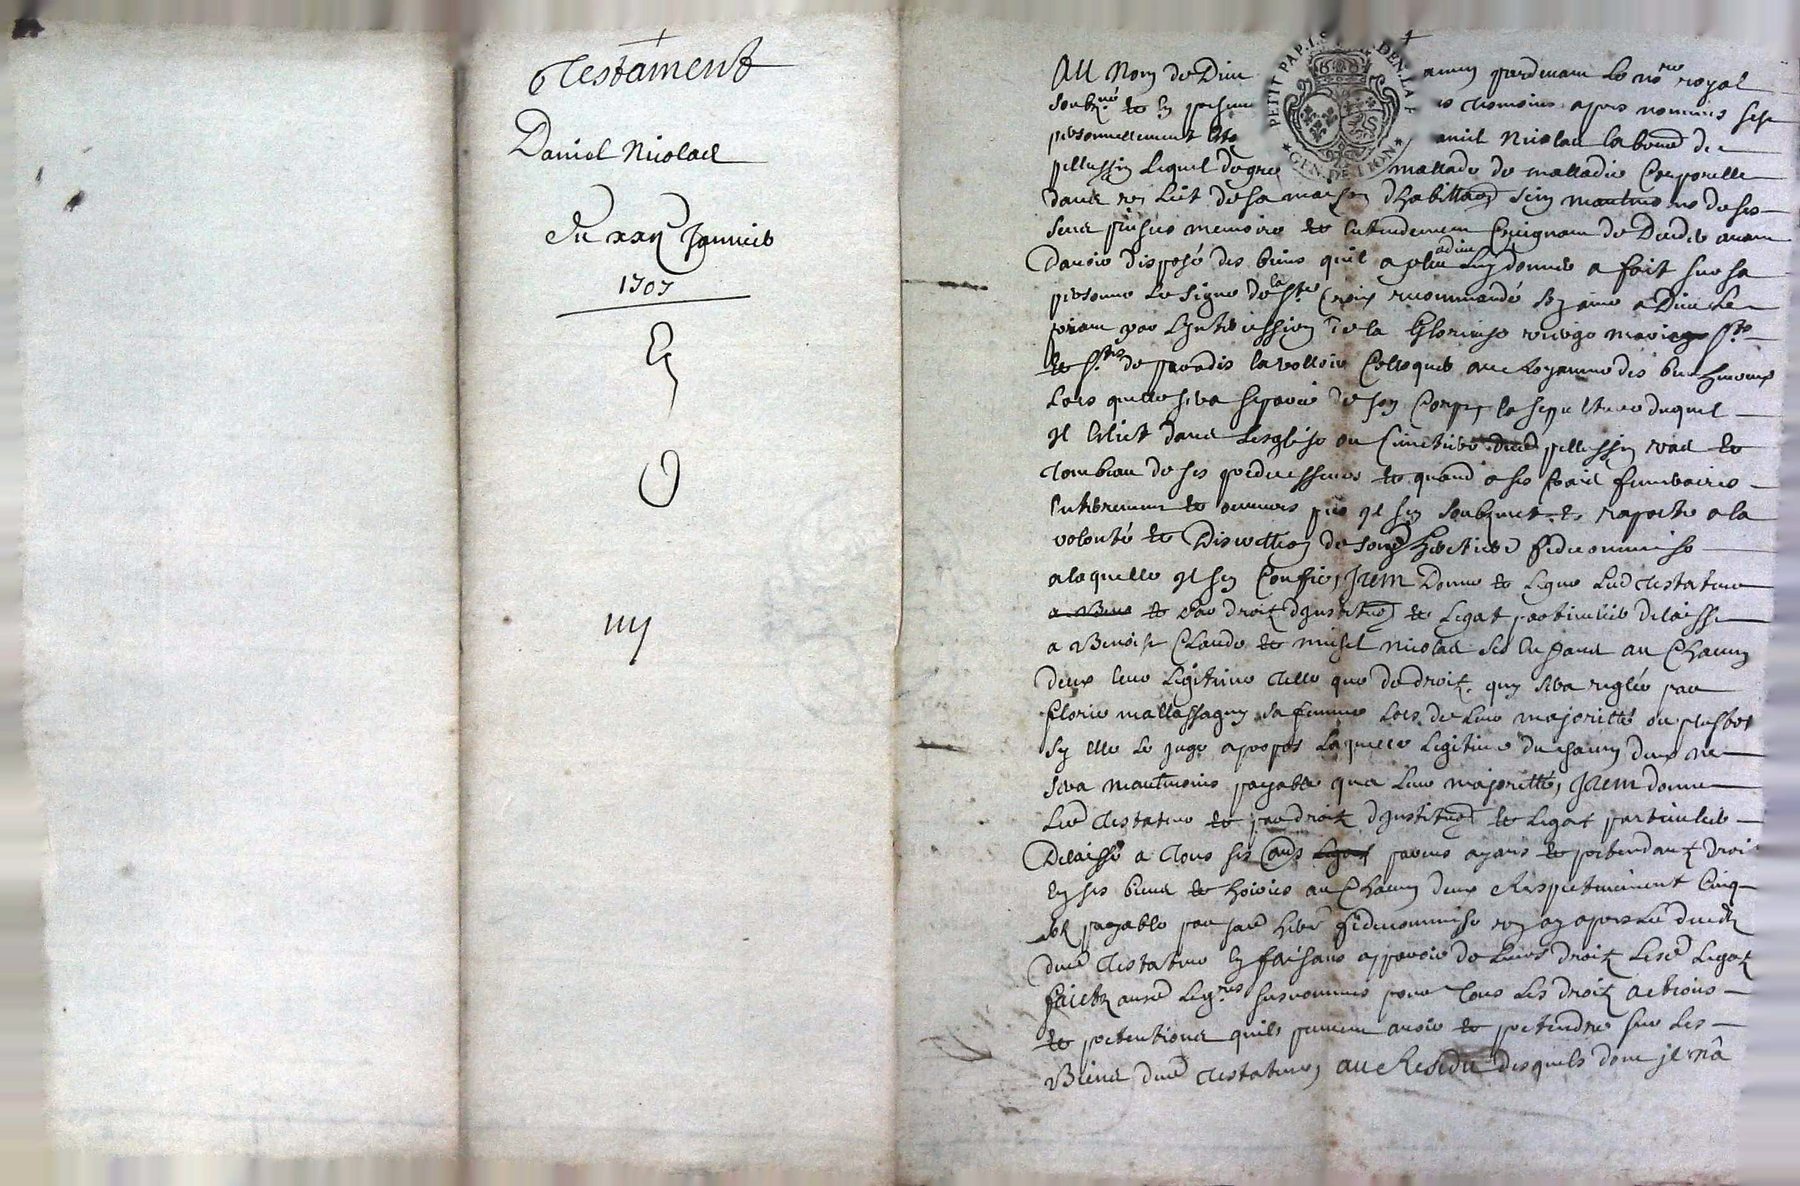 Testament
Daniel Nicolas
Du xxij Janvier
1707
iiij
PETIT PAP. I. S. DEN. LA F.
GEN. DE LION
Au Nom de Dieu amen pardevant le no.re royal
soub.né et en presence tesmoins apres nommés
personnellement Daniel Nicolas laboureur de
pellussin lequel de gré mallade de malladie Corporelle
dans un lict de sa maison d'habitaon sein neantmoins de ses
sens memoire et entendement Craignant de Deceder avant
davoir disposé des biens quil a pleu a dieu luy donner a fait sur sa
personne le signe de la Ste Croix recommandé son ame a Dieu le
priant par l'Intercession de la Glorieuse vierge marie Sts
et Stes de paradis la volloir Colloquer au Royaume des bienheureux
Lors quelle sera separée de son Corps, la sepulture duquel
Il Eslict dans Lesglise ou Cimetiere pellussin et
Tombeau de ses predecesseurs et quand a ses frais funeraires
Enterrement et oeuvres pies Il sen soubmet et raporte a la
volonté et Discretion de son heritiere fideicommise
a laquelle Il sen Confie, Item Donne et Legue Led testateur
et par droit d'Institu͠on et Legat particulier delaisse
a Benoist Claude et michel Nicolas ses Enfans au Chacun
deux leur Legitime telle que de droit, quy sera reglée par
florie mallassagny sa femme Lors de leur majoritté ou plustot
sy elle le juge a propos Laquelle Legitime du chacun deux ne
sera neantmoins payable qua leur majoritté, Item donne
Led testateur et par droit d'Institu͠on et Legat particulier
Delaisse a Tous ses autres parens ayans et pretendant droit
En ses biens et hoirie au Chacun deux Respectivement Cinq
sols payable par sad fideicommise un an apres Le deceds
dud testateur En faisans apparoir de leurs droits Lesd Legats
faicts ausd Leg.res susnommés pour Tous Les droits actions
et pretentions quils peuvent avoir et pretendre sur Les
Biens dud testateur, au Residu desquels dont jl n'a